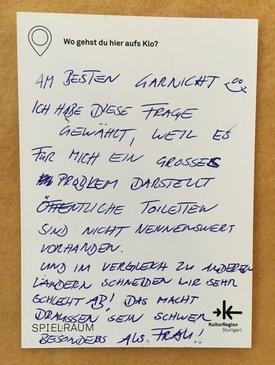 Wo gehst du hier aufs Klo?
AM BESTEN GARNICHT
ICH HABE DIESE FRAGE
GEWÄHLT, WEIL ES
FÜR MICH EIN GROSSES
PROBLEM DARSTELLT
ÖFFENTLICHE TOILETTEN
SIND NICHT NENNENSWERT
VORHANDEN.
UND IM VERGLEICH ZU ANDEREN
LÄNDERN SCHNEIDEN WIR SEHR
SCHLECHT AB! DAS MACHT
DRAUSSEN SEIN SCHWER
BESONDERS ALS FRAU!!
SPIEL:RAUM
KulturRegion
Stuttgart